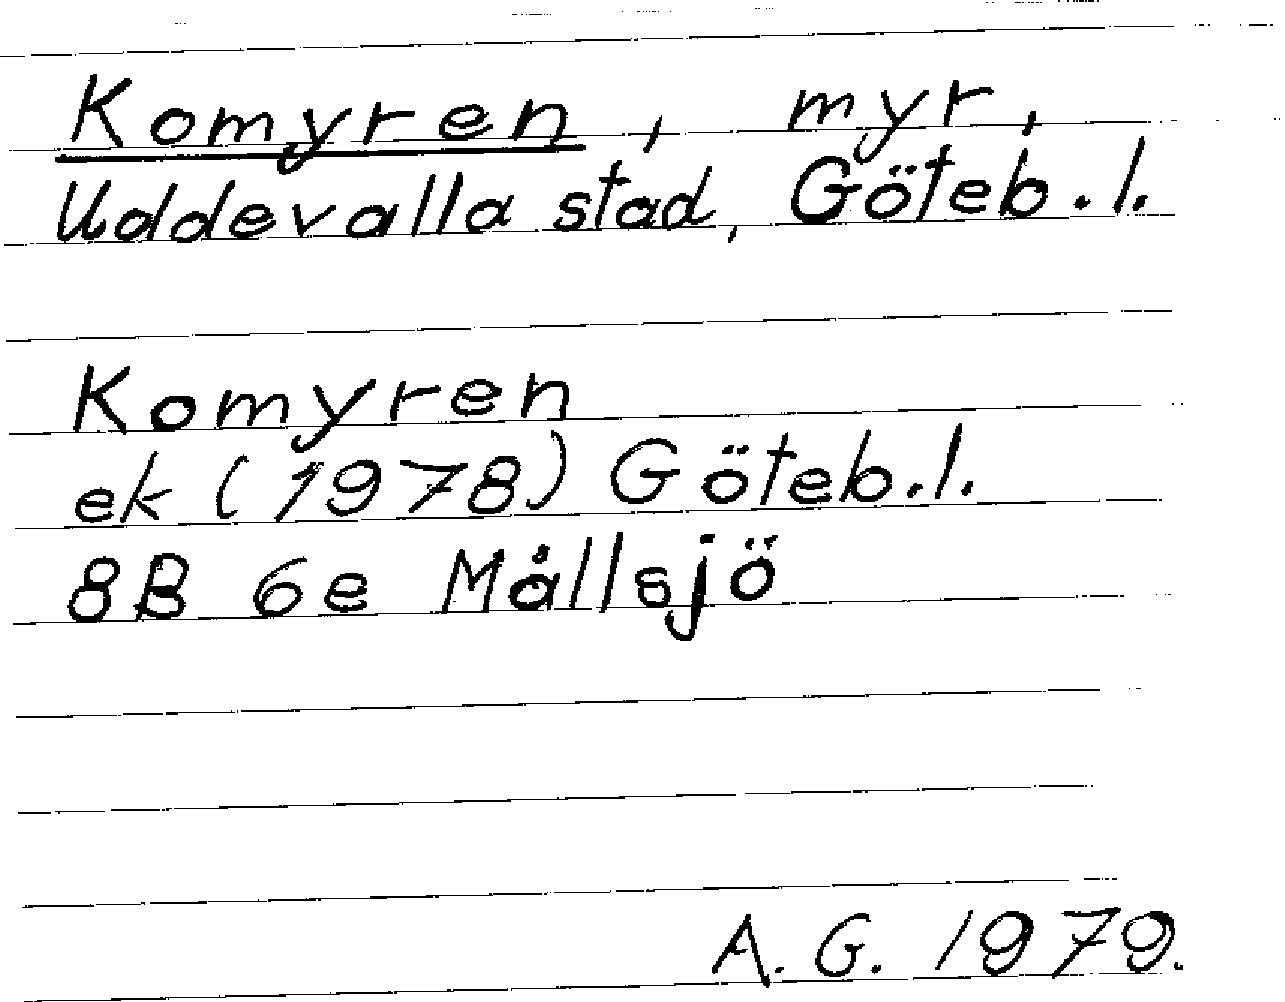 Komyren, myr,
Uddevalla stad, Göteb. l.
Komyren
ek (1978) Göteb. l.
8B 6e Mållsjö
A. G. 1979.